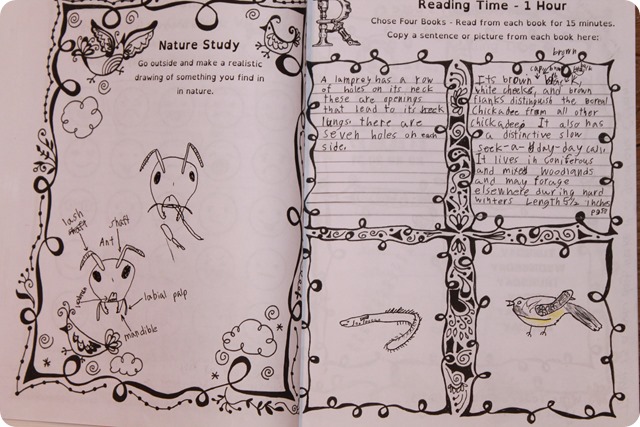 Nature Study
Go outside and make a realistic
drawing of something you find in
in nature.
lash
shaft
Ant
labial palp
mandible
Reading Time - 1 Hour
Chose Four Books - Read from each book for 15 minutes.
Copy a sentence or picture from each book here:
A lamprey has a row
of holes on its neck
these are openings
that lead to its
lungs there are
seven holes on each
side.
brown
Its brown
white cheeks, and brown
flanks distinguish the boreal
Chickadee from all other
chickadees It also has
a distinctive slow
seek-a-day-day call.
It lives in Coniferous
and mixed woodlands
and may forage
elsewhere during hard
winters Length 5½ inches